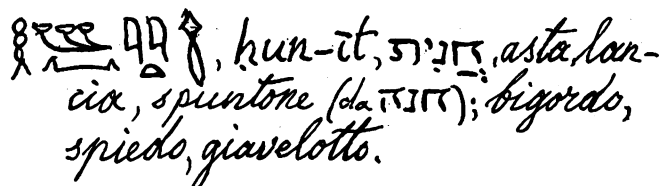 , ḥun-īt, חֲנִית, asta, lan-
cia, spuntone (da חנה); bigordo,
spiedo, giavelotto.